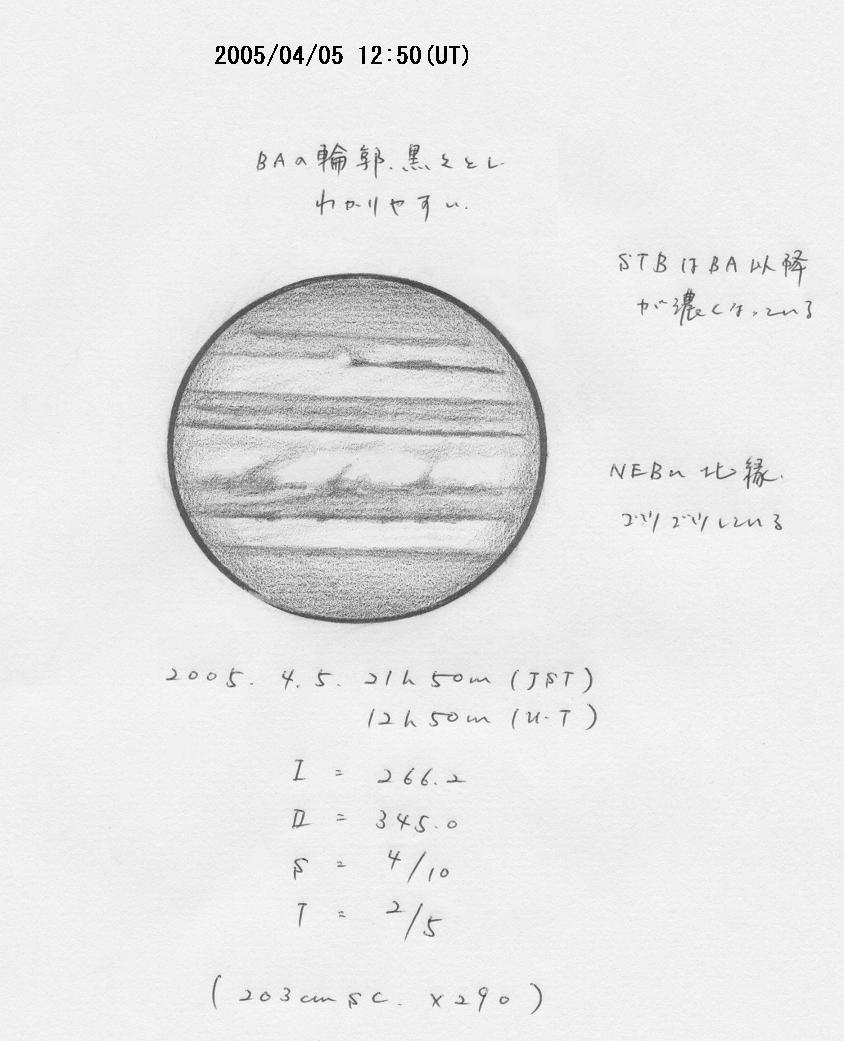 2005/04/05 12:50(UT)
BAの輪郭、黒々とし
わかりやすい.
STBはBA以降
が濃くなっている
NEBn 北縁.
ゴツゴツしている
2005. 4. 5. 21h 50m (JST)
12h 50m (U.T)
I = 266.2
II = 345.0
S = 4/10
T = 2/5
(203cm SC. ×290)